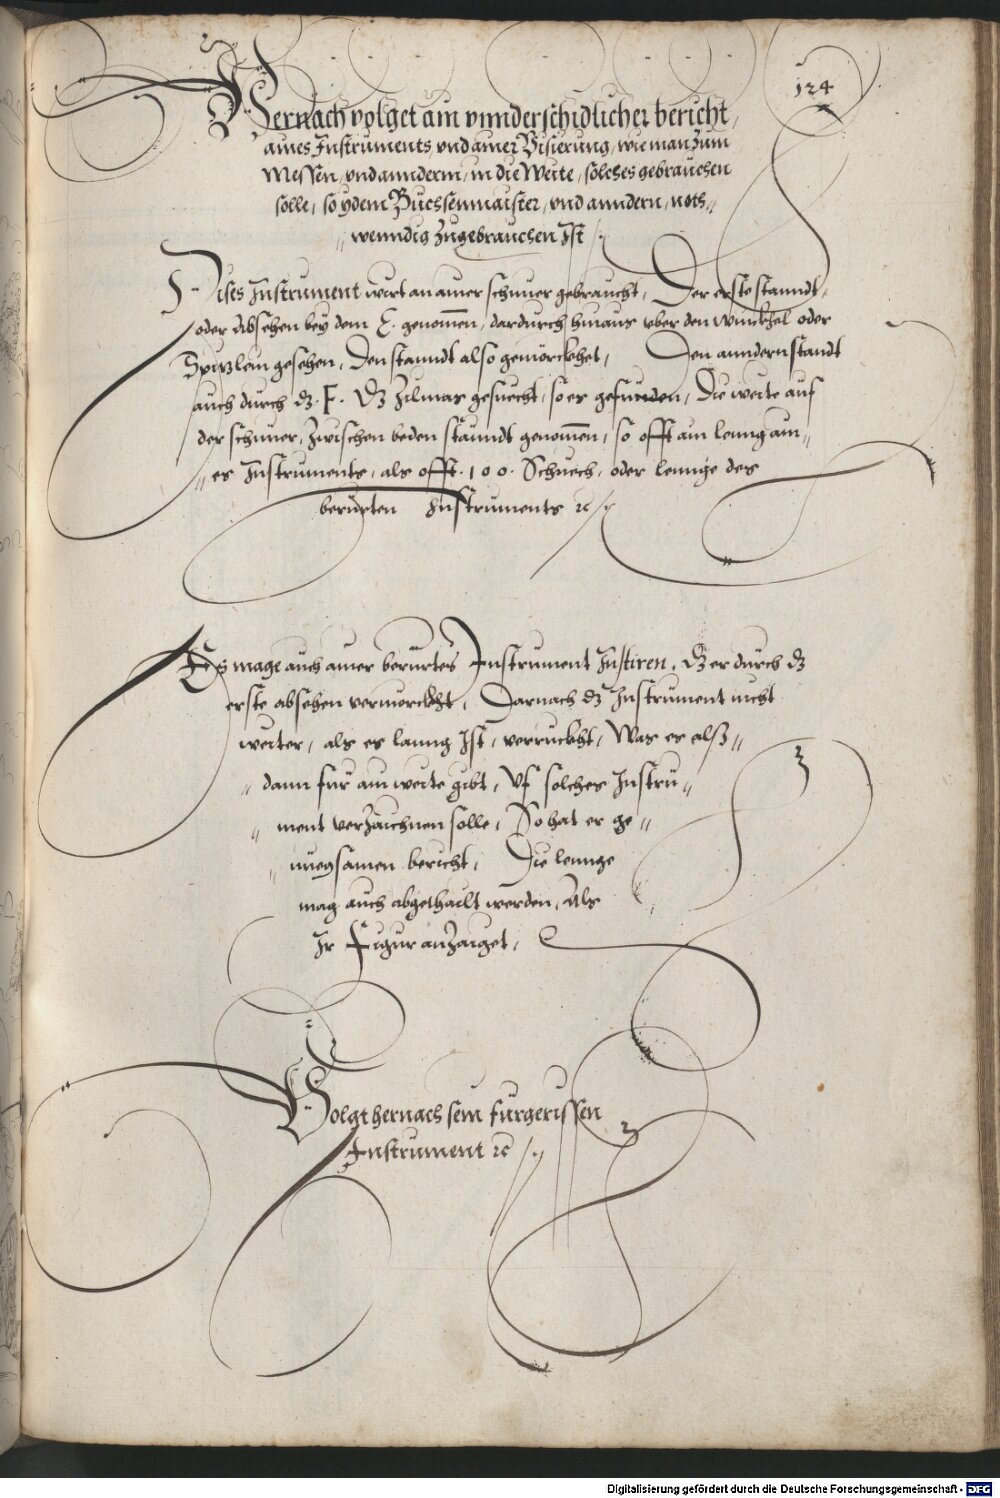 124
Hernach volget ain vnnderschidlicher bericht,
aines Instruments, vnd ainer Visierung, wie man zum
Messen, vnd annderm, in die Weite, solches gebrauchen
solle, so ÿdem Buchsenmaister, vnd anndern, not„
„ wenndig zugebrauchen Ist /.
Dises Instrument wirt an ainer schnuer gebraucht, Der erste stanndt,
oder Absehen beÿ dem E. genomen, dardurch hinaus vber den winckhel oder
Spitzlein gesehen, Den stanndt also gemörckhet, Den anndern standt
auch durch dz .F. Dz Zilmas gesuecht, so er gefunden, Die weite auf
der schnuer, zwischen beden stanndt genomen, so offt ain leng ain„
„ es Instruments, als offt .100. Schuech, oder lennge des
berürten Instruments ꝛc /.
Es mage auch ainer berürtes Instrument Justiren, Dz er durch dz
erste absehen vermörckht, Darnach dz Instrument nicht
weiter, als es lanng Ist, verruckht, Was es alß „
„ dann für ain weite gibt, Vf solches Instru „
„ ment verzaichnen solle, So hat er ge „
„ nuegsamen bericht, Die lennge
mag auch abgethailt werden, Als
Ir Figur anzaiget,
Volgt hernach sein fürgerissen
Instrument ꝛc /.
Digitalisierung gefördert durch die Deutsche Forschungsgemeinschaft - DFG